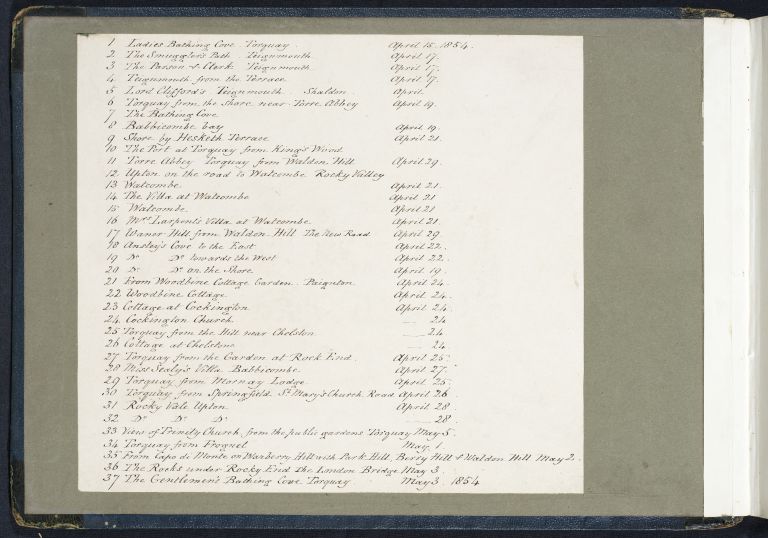 1 Ladies Bathing Cove Torquay. April 15. 1854.
2 The Smuggler's Path. Teignmouth. April 17.
3 The Parson & Clerk. Teignmouth. April 17.
4 Teignmouth from the Terrace. April 17.
5 Lord Clifford's Teignmouth. Shaldon. April
6 Torquay from the Shore near Torre Abbey April 19.
7 The Bathing Cove
8 Babbicombe bay April 19.
9 Shore by Hesketh Terrace April 21.
10 The Port at Torquay from King's Wood
11 Torre Abbey Torquay from Waldon Hill April 29.
12 Upton on the road to Watcombe Rocky Valley
13 Watcombe April 21.
14 The Villa at Watcombe April 21
15 Watcombe April 21
16 Mrs. Larpent's Villa at Watcombe April 21.
17 Waner Hill from Waldon Hill The New Road April 29.
18 Ansley's Cove to the East April 22.
19 Do Do towards the West April 22.
20 Do Do on the Shore April 19.
21 From Woodbine Cottage Garden. Paignton. April 24.
22 Woodbine Cottage April 24.
23 Cottage at Cockington April 24.
24 Cockington Church — 24.
25 Torquay from the Hill near Chelston — 24.
26 Cottage at Chelstone — 24.
27 Torquay from the Garden at Rock End. April 25.
28 Miss Sealy's Villa Babbicombe April 27.
29 Torquay from Mornay Lodge April 25.
30 Torquay from Springfield St. Mary's Church Road April 26
31 Rocky Vale Upton April 28
32 Do Do Do — 28.
33 View of Trinity Church from the public gardens Torquay May 5.
34 Torquay from Frognel May 1
35 From Capo di Monte on Warberry Hill with Park Hill, Berry Hill & Waldon Hill May 2.
36 The Rocks under Rocky End the London Bridge May 3.
37 The Gentlemen's Bathing Cove Torquay May 3 1854